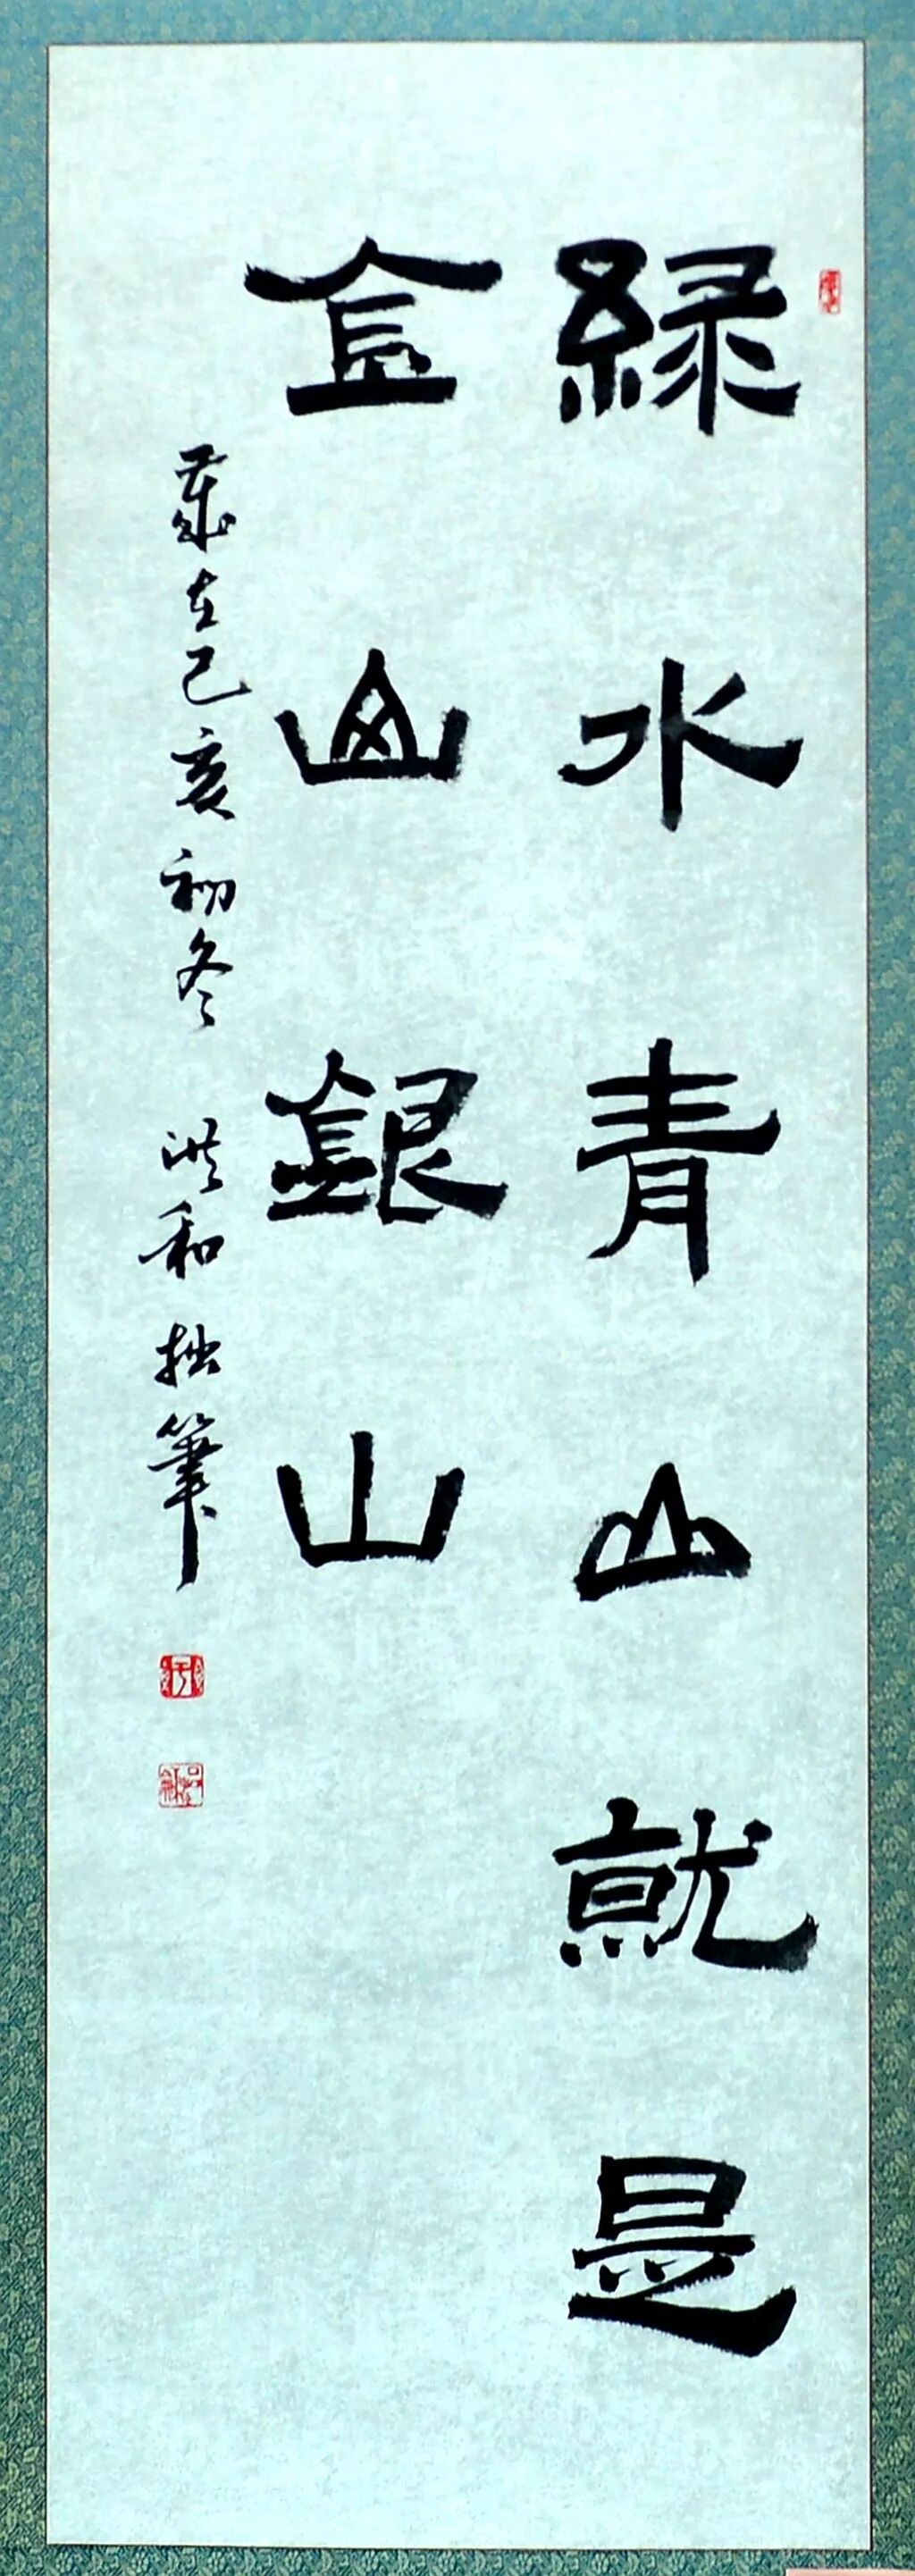 緑水青山就是
金山銀山
歲在己亥初冬 洪和 拙筆